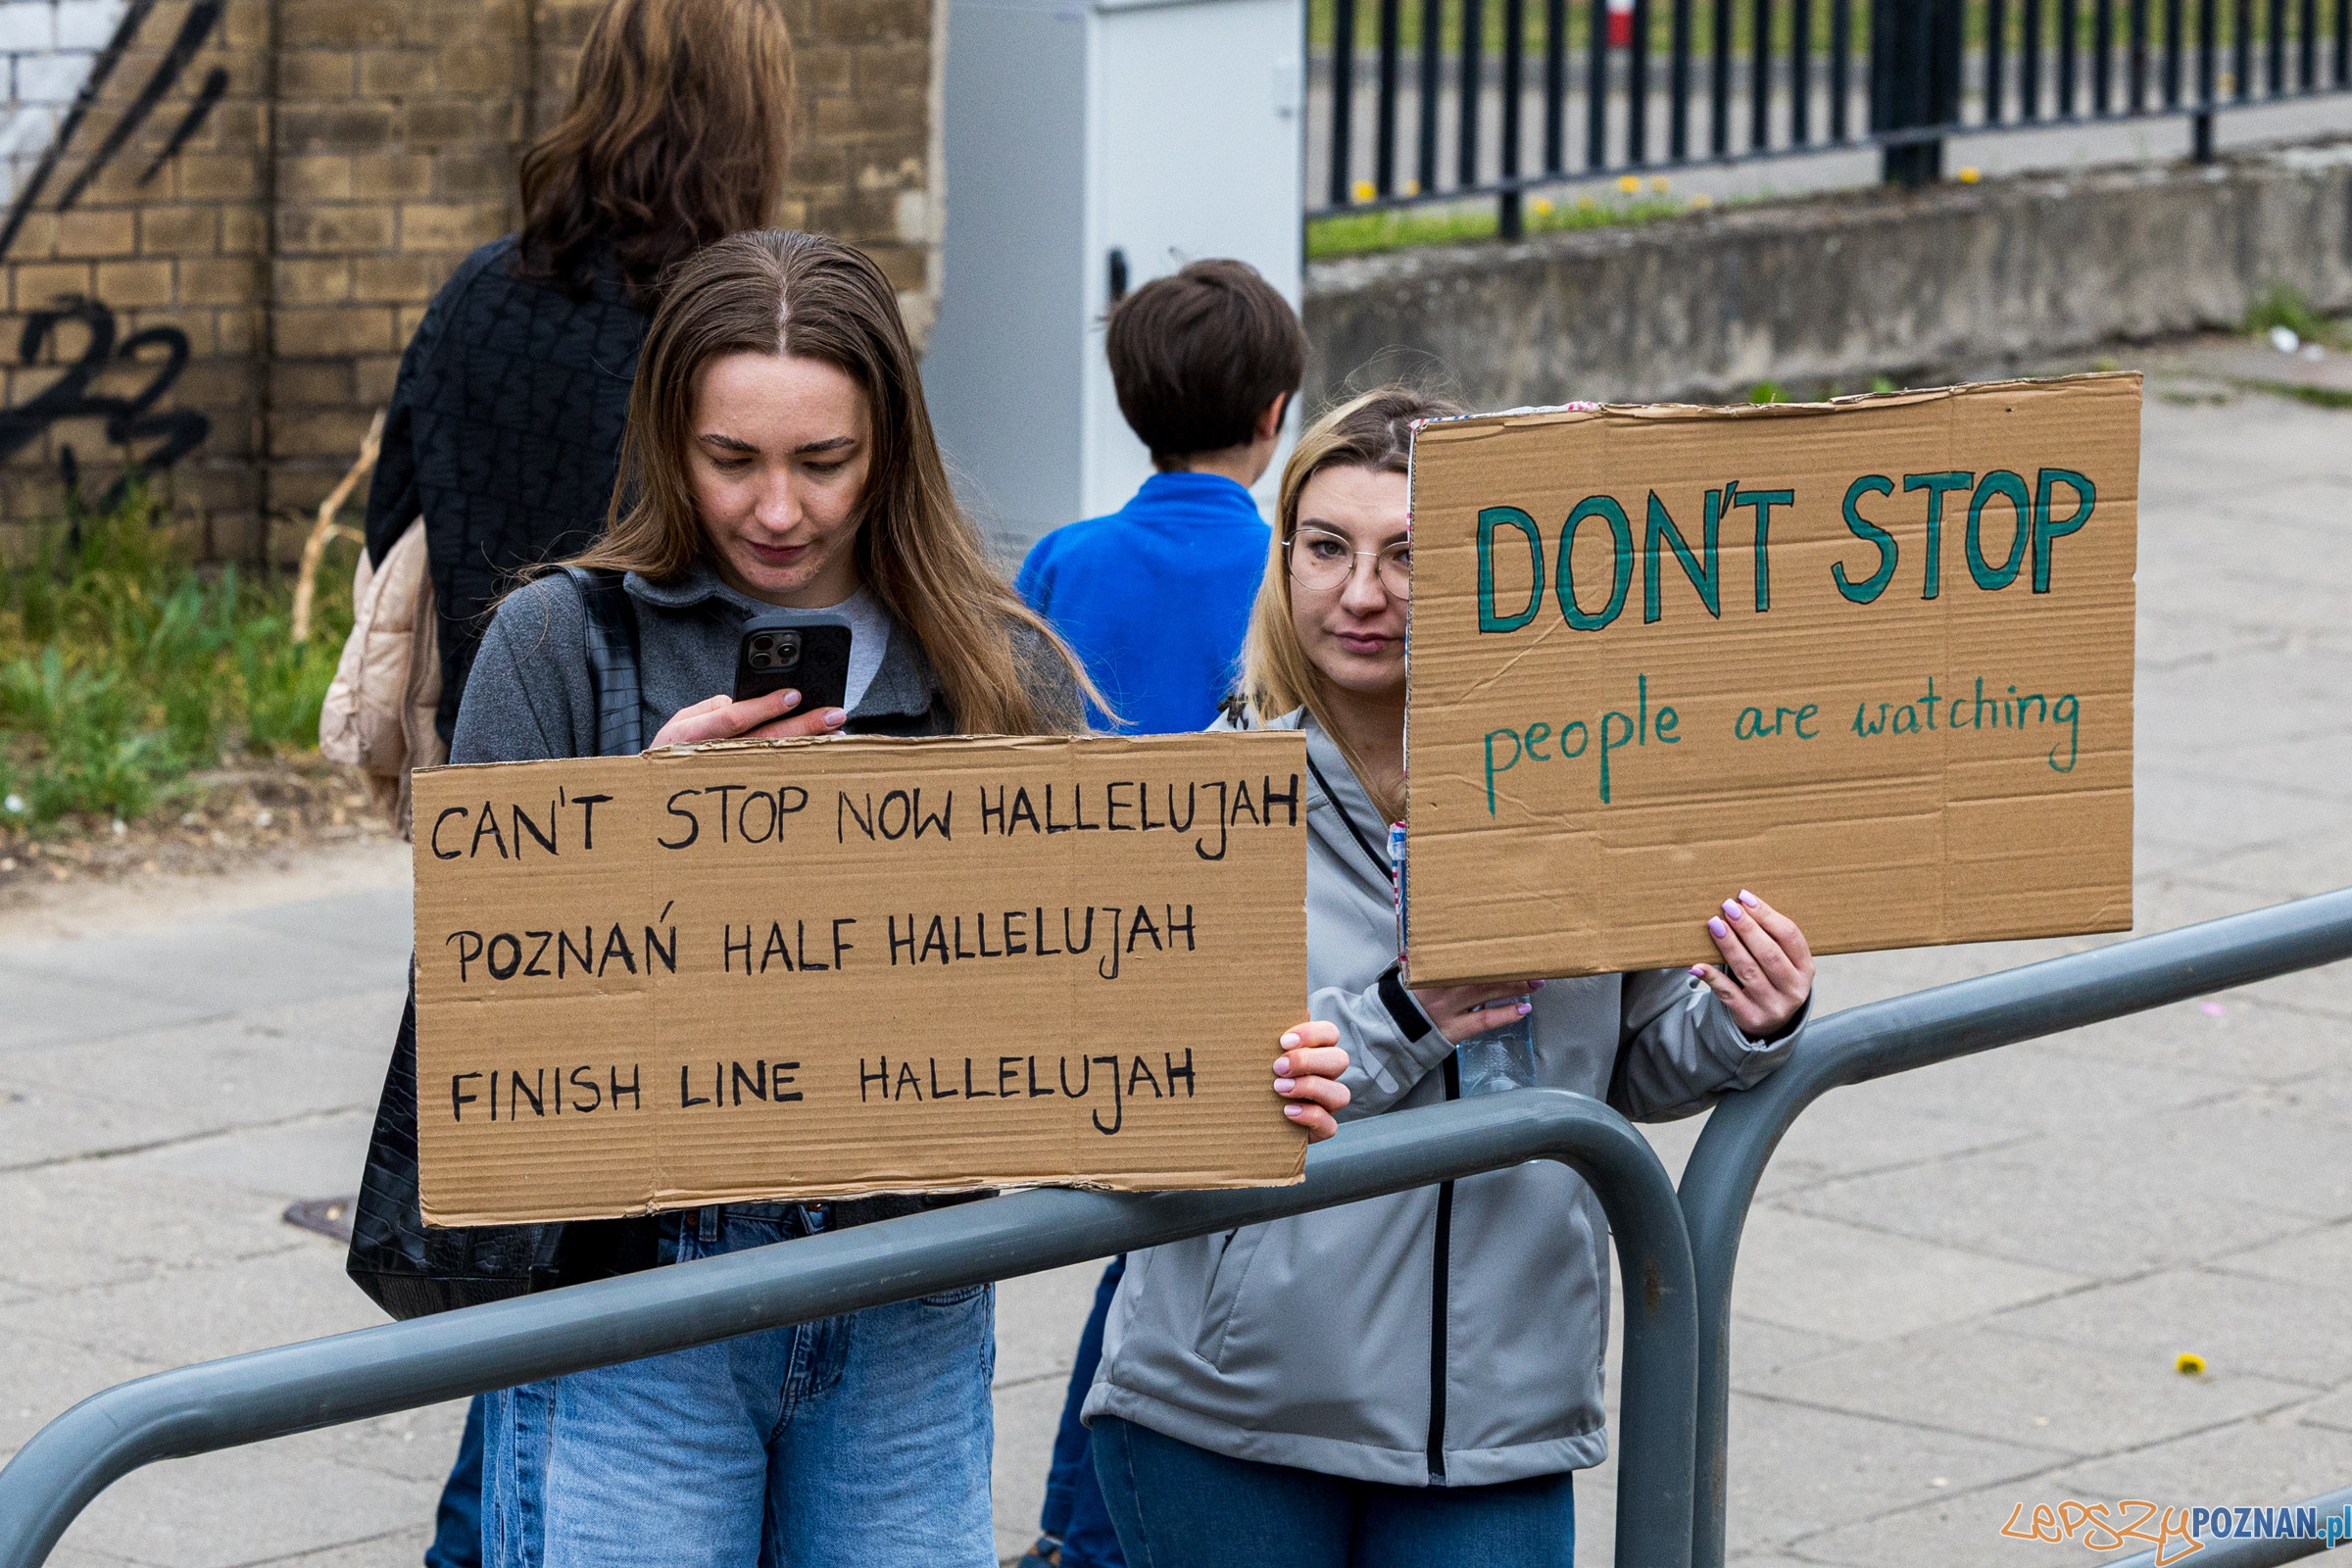 CAN'T STOP NOW HALLELUJAH
POZNAŃ HALF HALLELUJAH
FINISH LINE HALLELUJAH
DON'T STOP
people are watching
LEPSZY POZNAN.pl